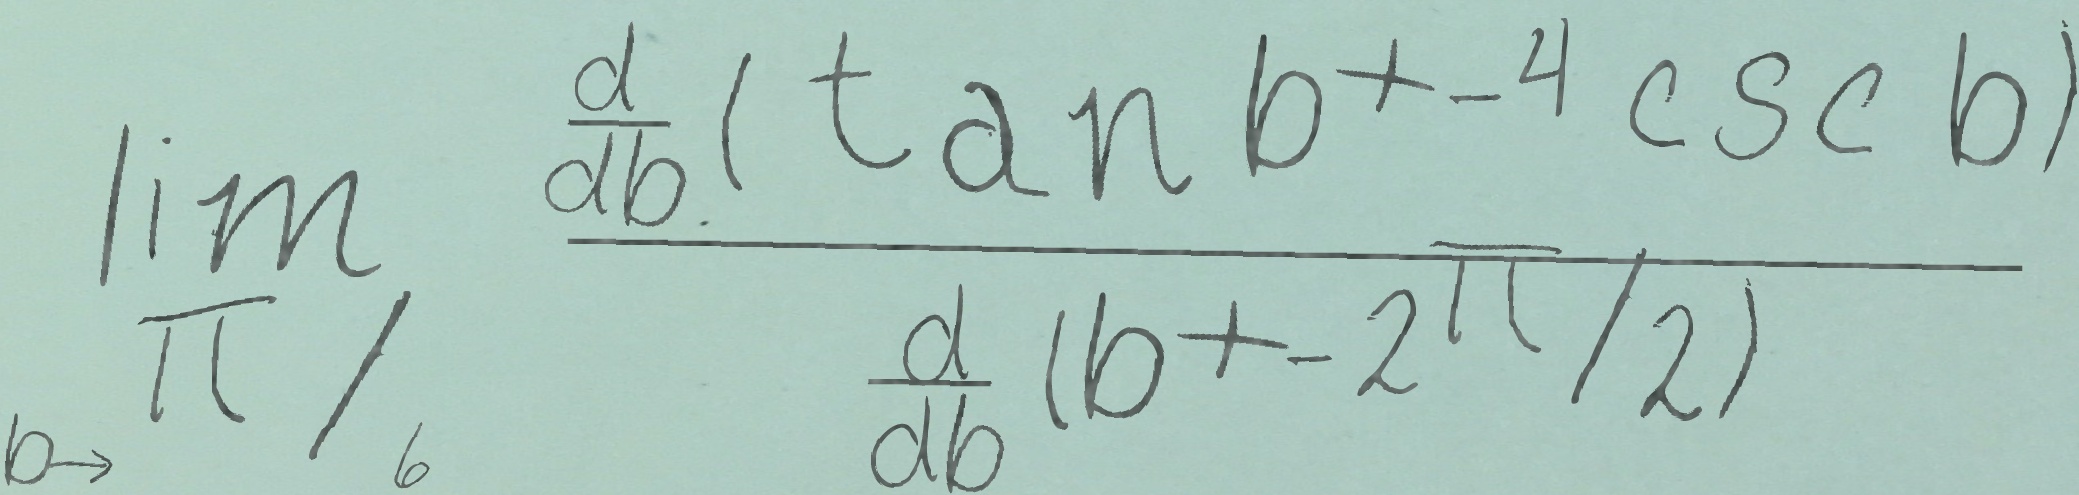 \lim_{b \to \pi/6} \frac{\frac{d}{db}(\tan b + -4 \csc b)}{\frac{d}{db}(b + -2\pi/2)}